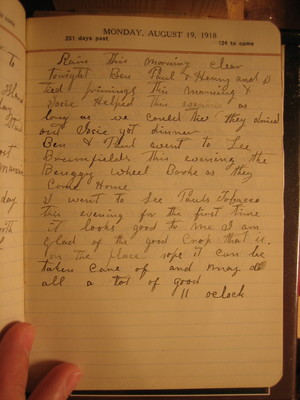 MONDAY, AUGUST 19, 1918
231 days past
134 to come
Rain this morning clear
tonight Ben Paul & Henry and I
tied primings this morning &
Josie Helped this evening as
long as we could tie they
and Josie got dinner
Ben & Paul went to See
Broomfields this evening the
Buuggy Wheel Broke as they
Come Home
I went to See Pauls Tobacco
this evening for the first time
it looks good to me I am
glad of the good Crop that is
on the Place hope it can be
taken Cane of and may do
all a lot of good
11 oclock